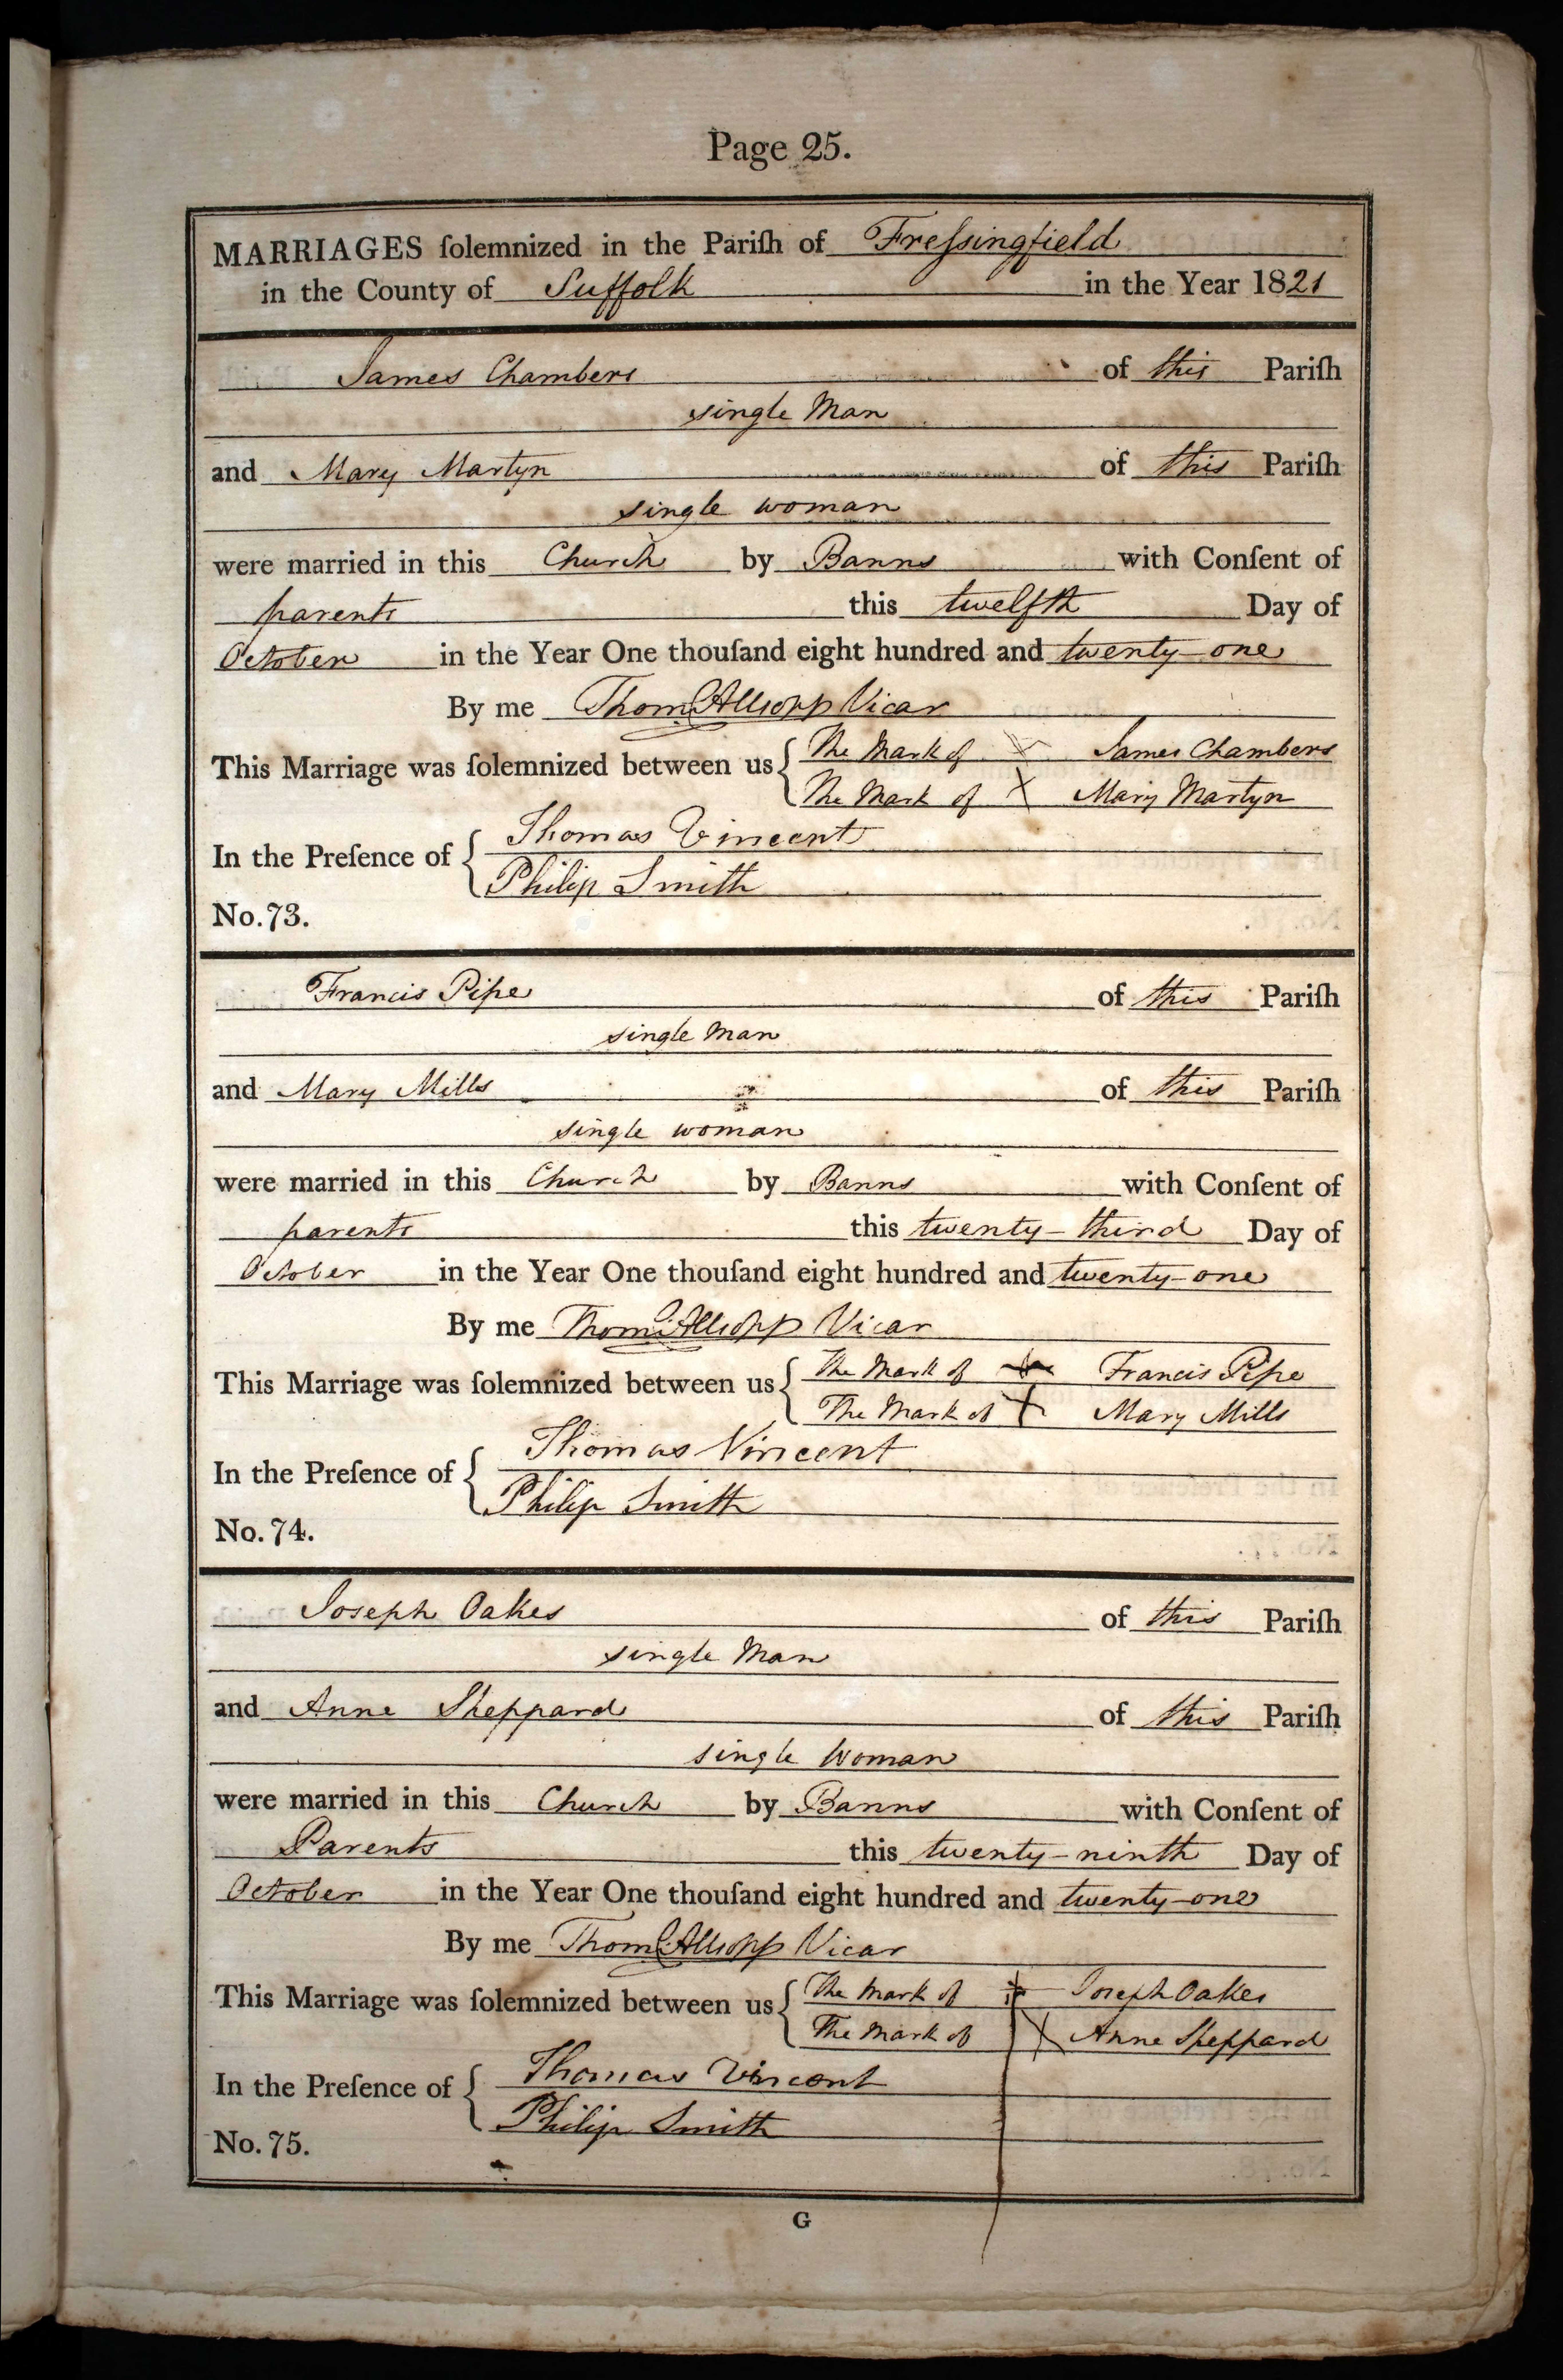 Page 25.
MARRIAGES ſolemnized in the Pariſh of Freſsingfield
in the County of Suffolk in the Year 1821
James Chambers of this Pariſh
single Man
and Mary Martyn of this Pariſh
single woman
were married in this Church by Banns with Conſent of
parents this twelfth Day of
October in the Year One thouſand eight hundred and twenty-one
By me Thoms Allsopp Vicar
This Marriage was ſolemnized between us { The Mark of X James Chambers
The Mark of X Mary Martyn
In the Preſence of { Thomas Vincent
Philip Smith
No. 73.
Francis Pipe of this Pariſh
single Man
and Mary Mills of this Pariſh
single woman
were married in this Church by Banns with Conſent of
parents this twenty-third Day of
October in the Year One thouſand eight hundred and twenty-one
By me Thoms Allsopp Vicar
This Marriage was ſolemnized between us { The Mark of X Francis Pipe
The Mark of X Mary Mills
In the Preſence of { Thomas Vincent
Philip Smith
No. 74.
Joseph Oakes of this Pariſh
single Man
and Anne Sheppard of this Pariſh
single Woman
were married in this Church by Banns with Conſent of
Parents this twenty-ninth Day of
October in the Year One thouſand eight hundred and twenty-one
By me Thoms Allsopp Vicar
This Marriage was ſolemnized between us { The Mark of X Joseph Oakes
The Mark of X Anne Sheppard
In the Preſence of { Thomas Vincent
Philip Smith
No. 75.
G